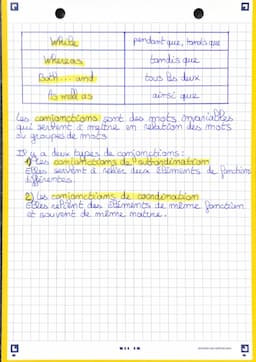 While pendant que, tandis que
Whereas tandis que
Both ... and tous les deux
As well as ainsi que
Les conjonctions sont des mots invariables
qui servent à mettre en relation des mots
ou groupes de mots.
Il y a deux types de conjonctions :
1) Les conjonctions de subordination
Elles servent à relier deux éléments de fonctions
différentes.
2) Les conjonctions de coordination
Elles relient des éléments de même fonction
et souvent de même nature.